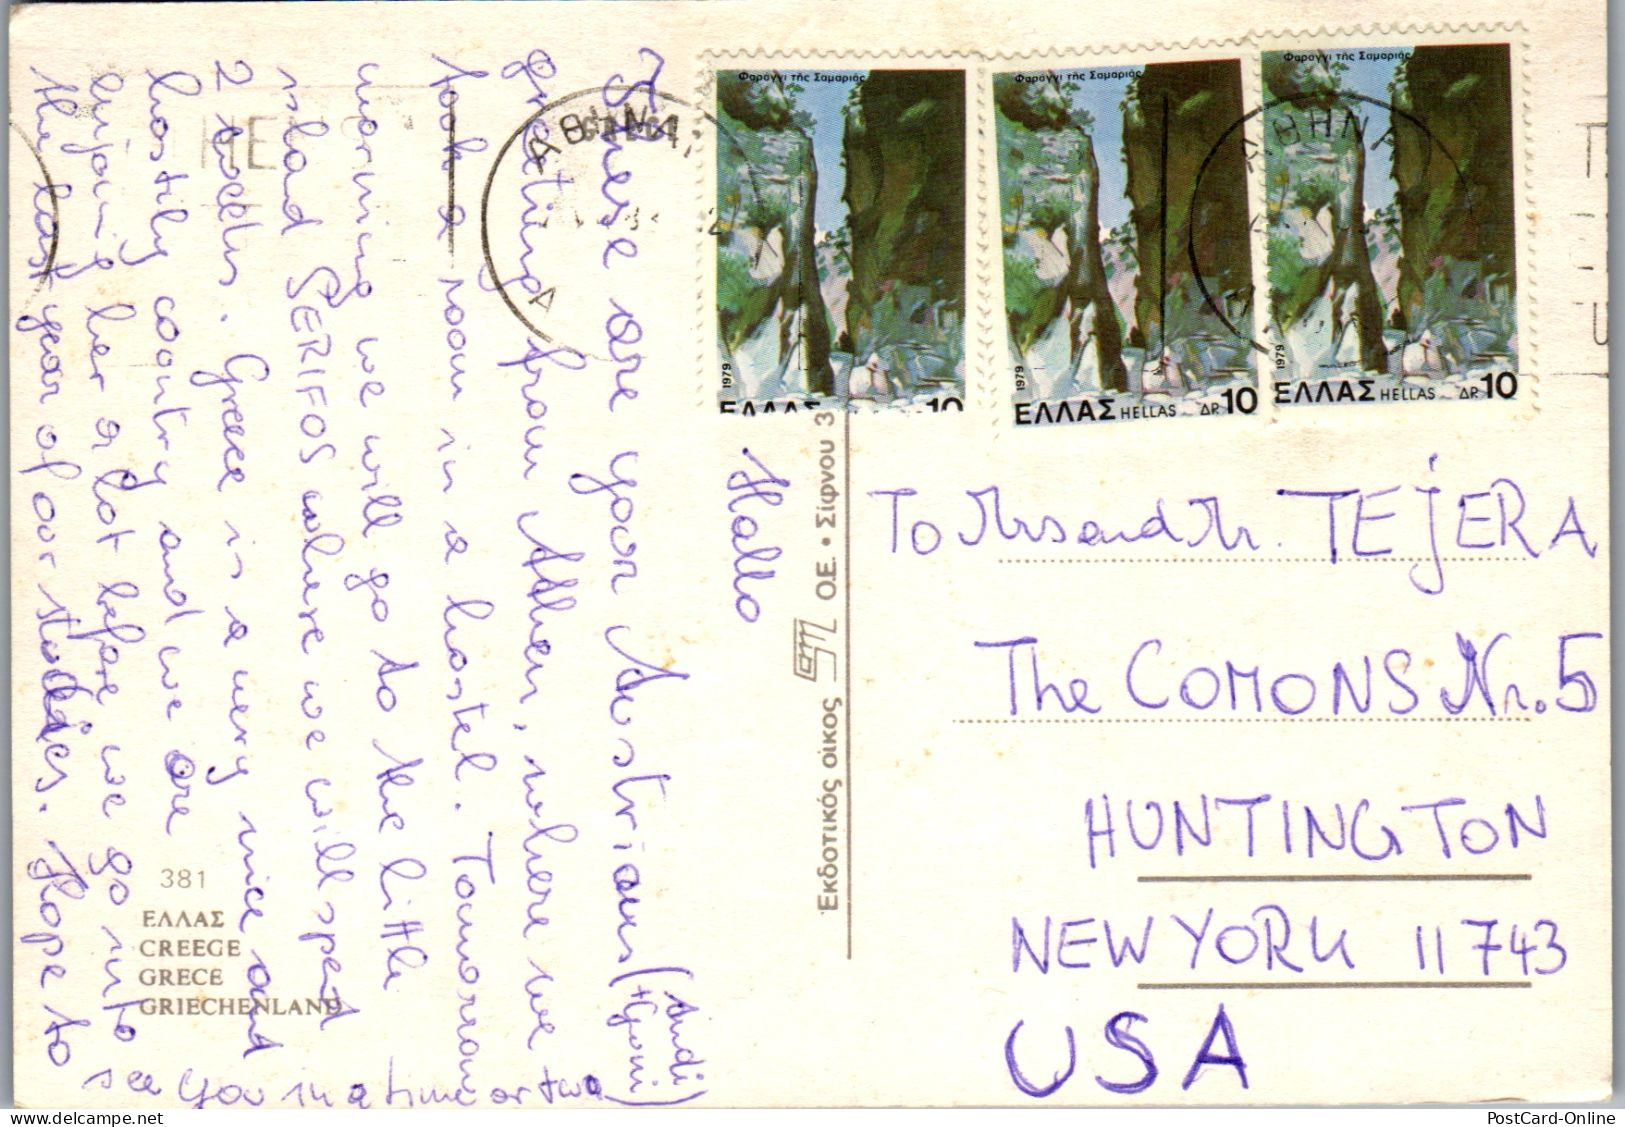 Hallo
These are your Austrians (Andi
+ Guni)
greeting from Athen, where we
took a room in a hostel. Tomorrow
morning we will go to the little
island SERIFOS where we will spent
2 weeks. Greece is a very nice and
hostily country and we are
enjoying her a lot before we go into
the last year of our studies. Hope to
see you in a time or two
381
ΕΛΛΑΣ
CREECE
GRECE
GRIECHENLAND
Εκδοτικός οίκος ΟΕ. • Σίφνου 3
Φαράγγι τῆς Σαμαριάς
1979
ΕΛΛΑΣ
10
Φαράγγι τῆς Σαμαριάς
1979
ΕΛΛΑΣ HELLAS ΔΡ. 10
Φαράγγι τῆς Σαμαριάς
1979
ΕΛΛΑΣ HELLAS ΔΡ. 10
ΑΘΗΝΑΙ
Α
ΑΘΗΝΑ
To Mrs and Mr. TEJERA
The COMONS Nr. 5
HUNTINGTON
NEW YORK 11743
USA
PostCard-Online